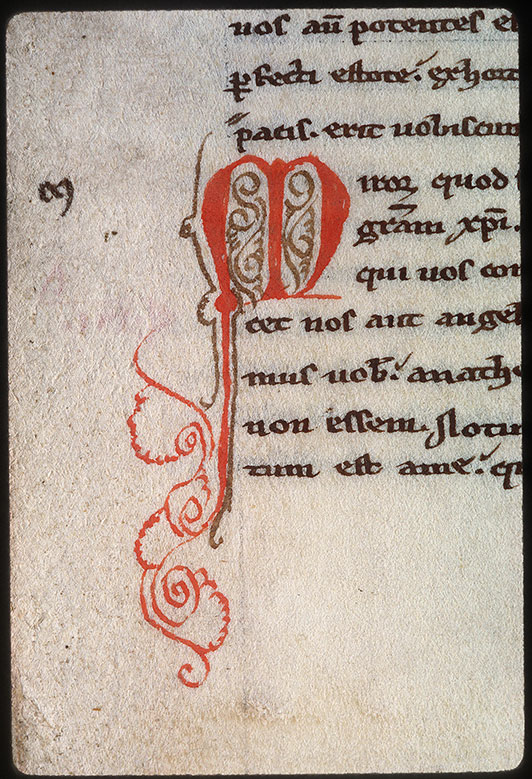 uos aũ potentes
ꝑfecti estote. exhort
pacis. erit uobiscum
m
Miror quod
grãm xp̃i.
qui uos con
cet nos aut angel
mus uob̃. anathe
non essem. Notum
tum est a me. q